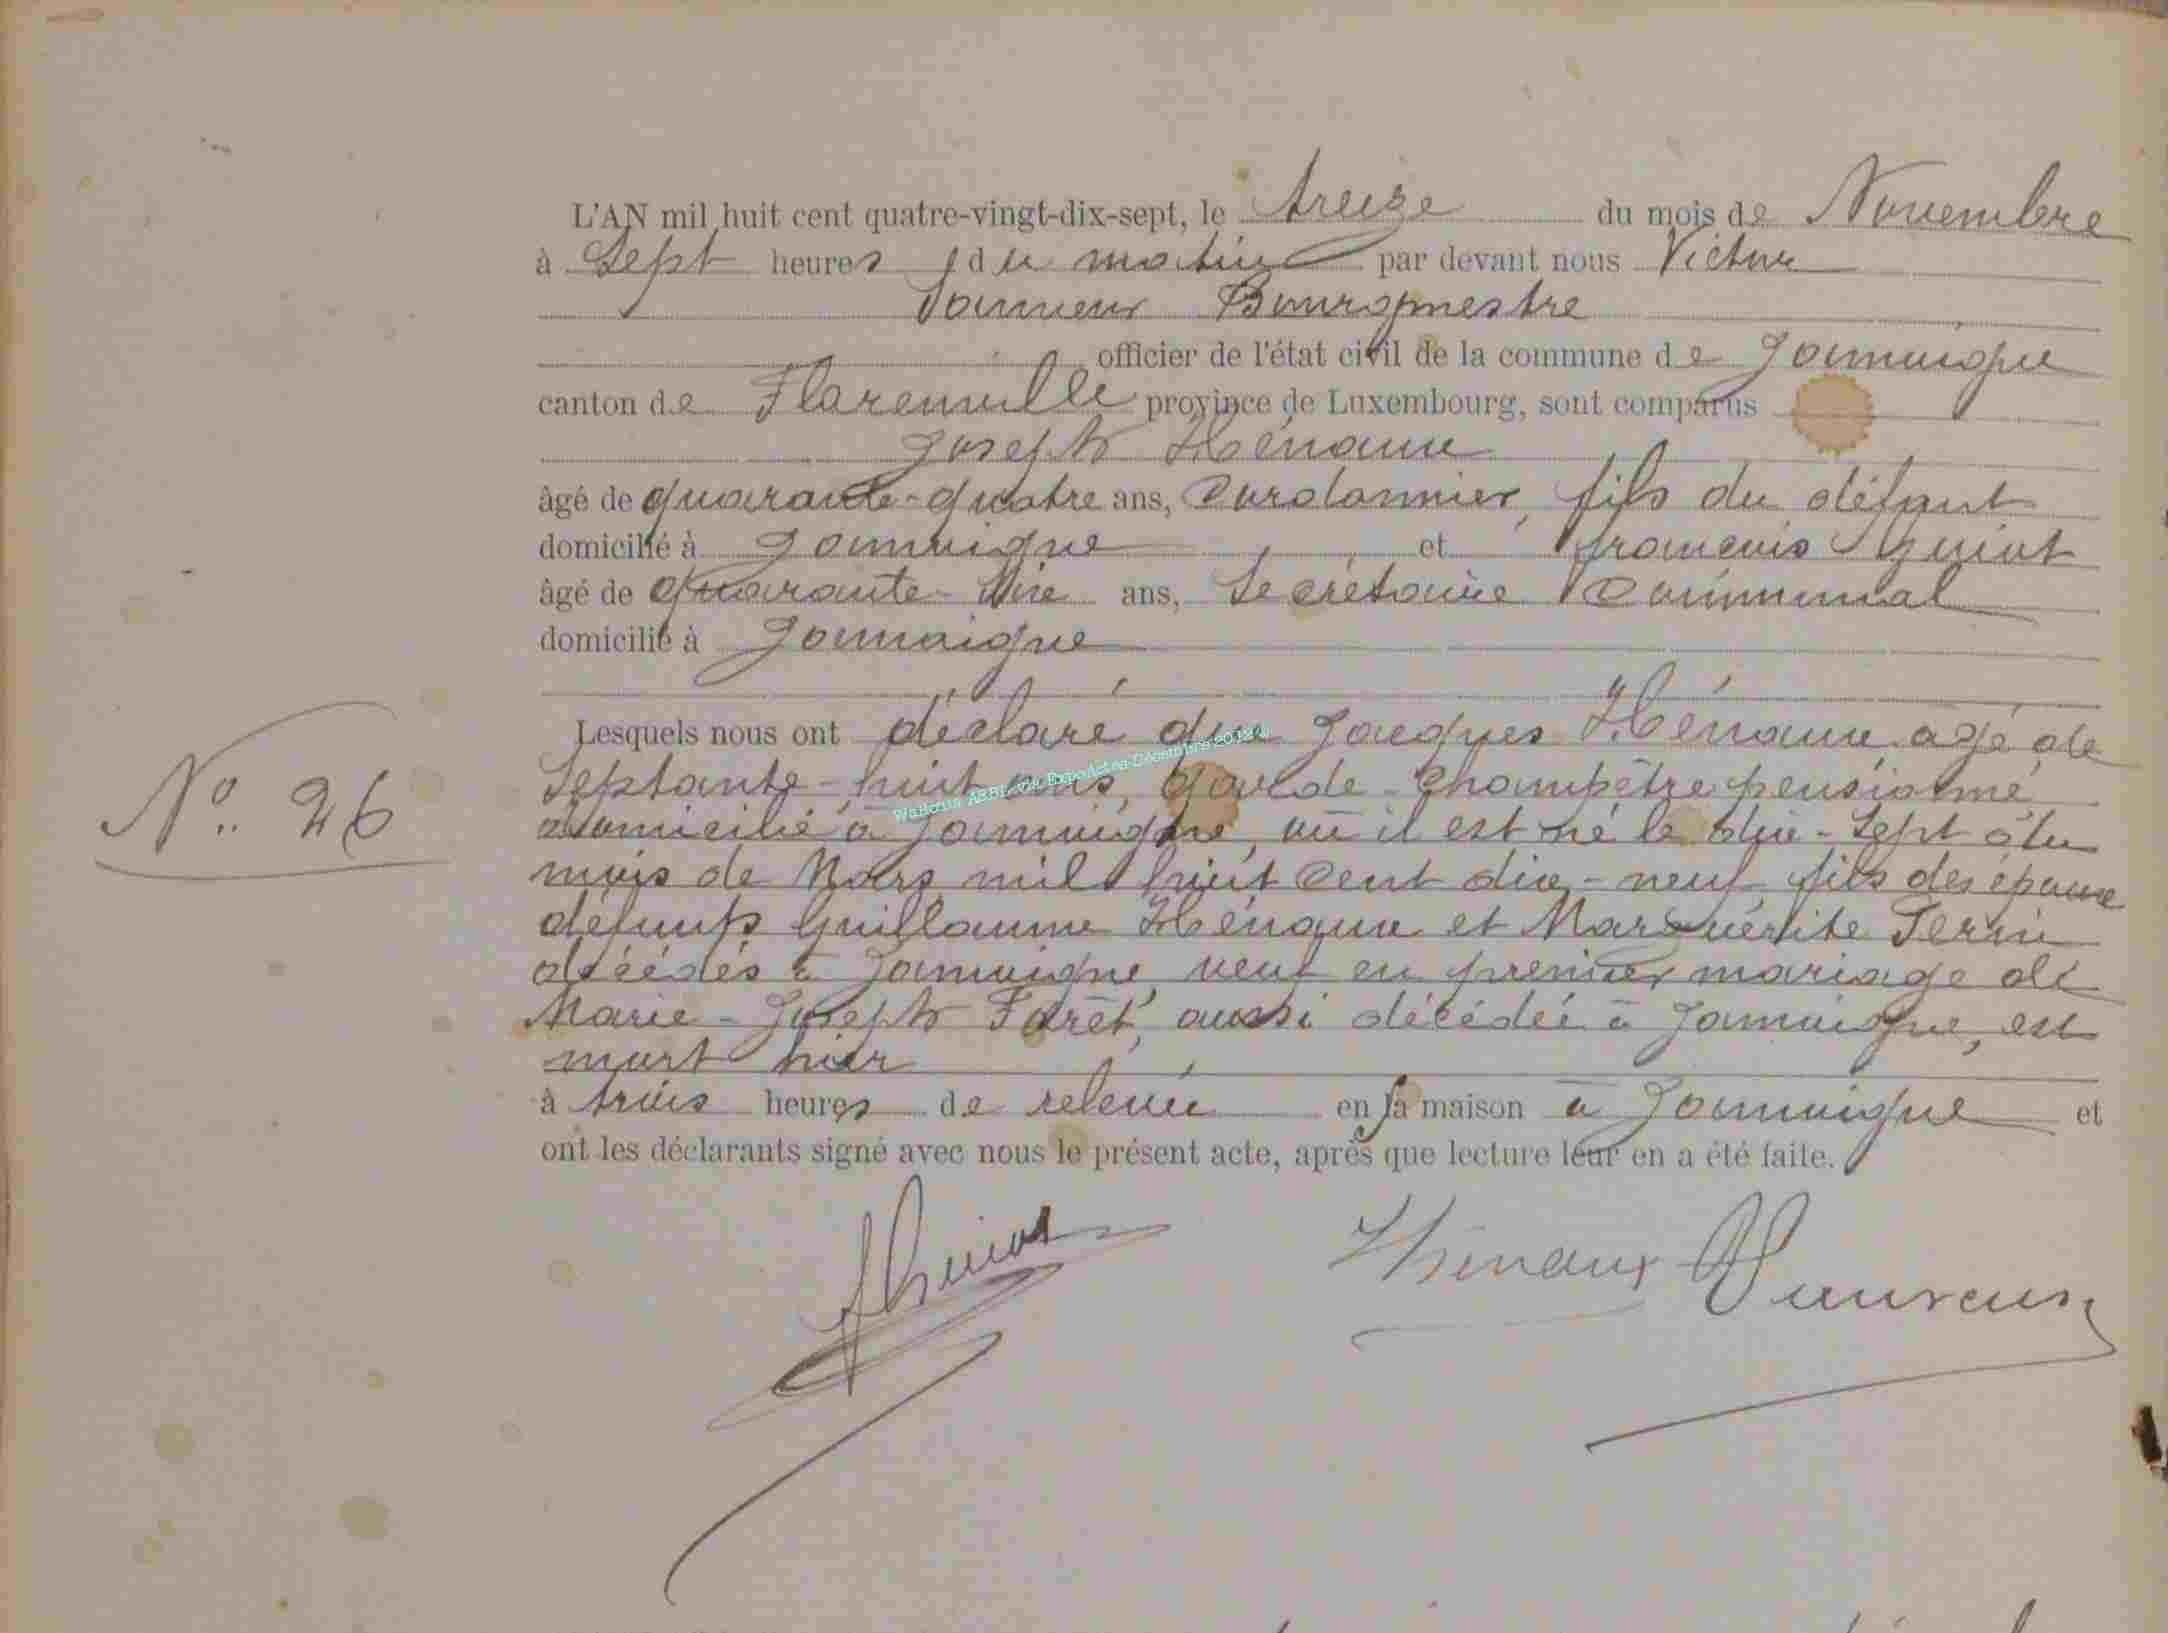 L'AN mil huit cent quatre-vingt-dix-sept, le treize du mois de Novembre
à Sept heures du matin par devant nous Victor
Bourgmestre
officier de l'état civil de la commune de Jamoigne
canton de Florenville province de Luxembourg, sont comparus
Joseph Thénaux
âgé de quarante-quatre ans, Cordonnier, fils du défunt
domicilié à Jamoigne et françois Guiot
âgé de Quarante- ans, Secrétaire Communal
domicilié à Jamoigne
Lesquels nous ont déclaré que Jacques Thénaux, agé de
Septante-huit ans, Garde-Champêtre pensionné
domicilié à Jamoigne, où il est né le dix-Sept du
mois de Mars mil huit Cent dix-neuf, fils des époux
défunts Guillaume Thénaux et Marguérite Perin
décédés à Jamoigne, veuf en premier mariage de
Marie-Joseph Forêt, aussi décédée à Jamoigne, est
mort hier
à trois heures de relevée en sa maison à Jamoigne et
ont les déclarants signé avec nous le présent acte, après que lecture leur en a été faite.
N°. 26
Thénaux